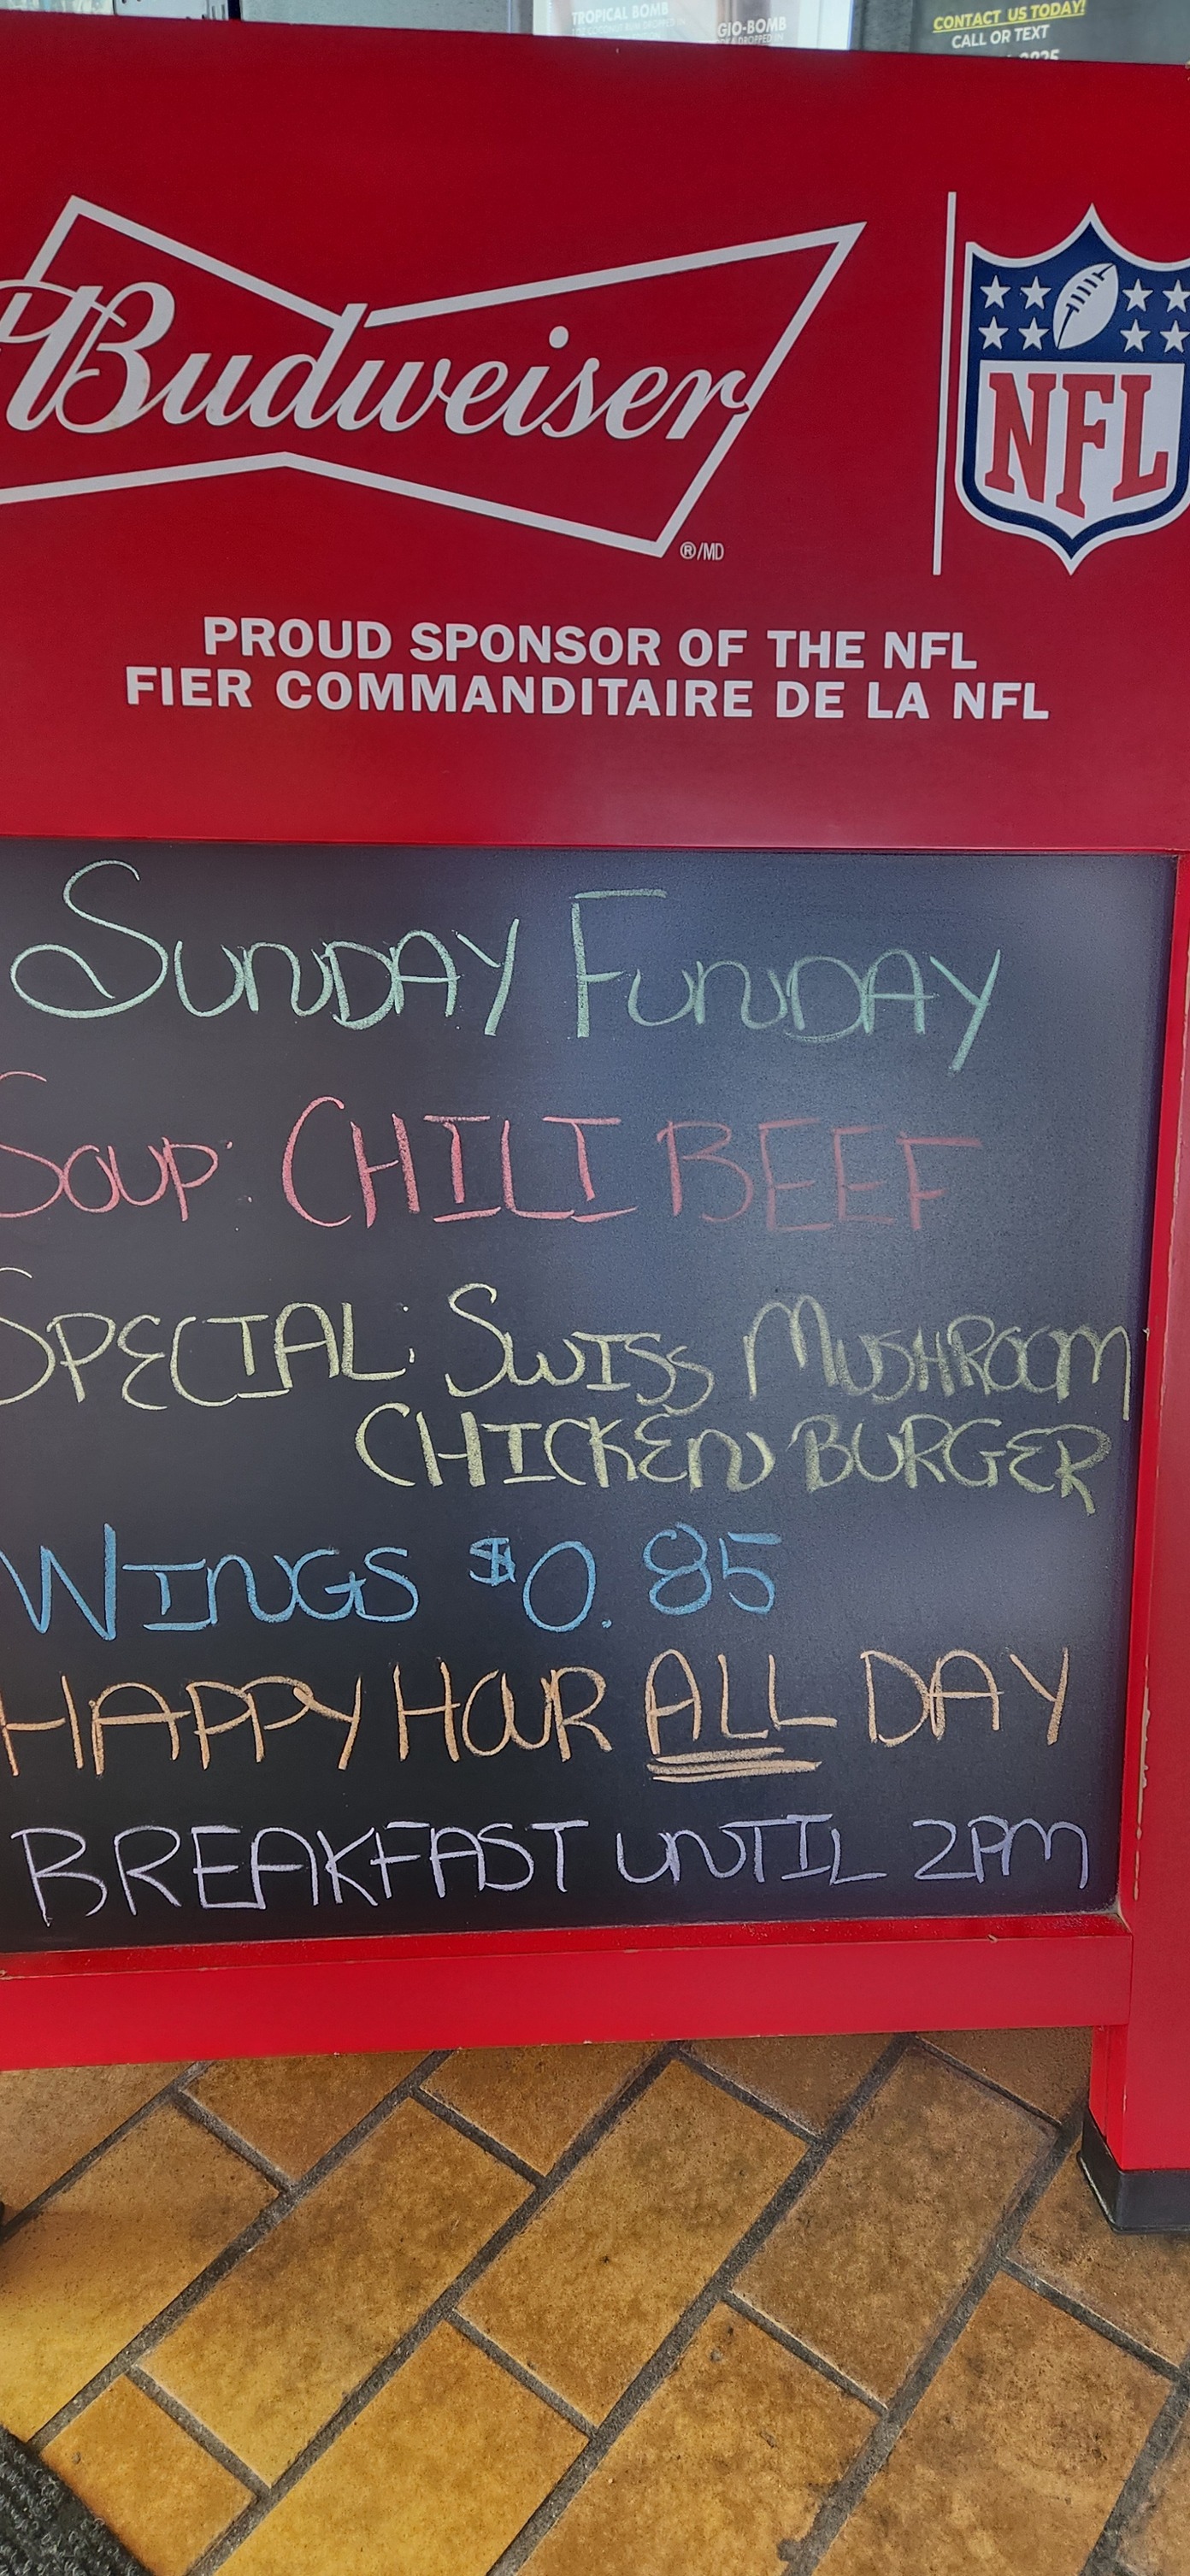 TROPICAL BOMB
GIO-BOMB
CONTACT US TODAY!
CALL OR TEXT
Budweiser
®/MD
NFL
PROUD SPONSOR OF THE NFL
FIER COMMANDITAIRE DE LA NFL
SUNDAY FUNDAY
SOUP: CHILI BEEF
SPECIAL: SWISS MUSHROOM
CHICKEN BURGER
WINGS $0.85
HAPPY HOUR ALL DAY
BREAKFAST UNTIL 2PM